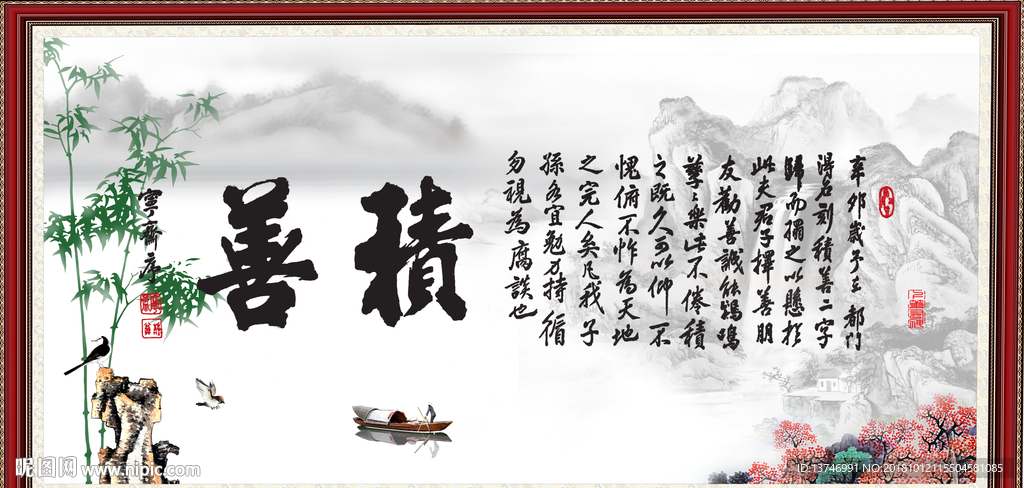 積善
辛卯歲予至都門
得石刻積善二字
歸而搨之以懸於
此夫君子擇善朋
友勸善誡能鷄鳴
孳〻樂此不倦積
之既久可以仰不
愧俯不怍為天地
之完人矣凡我子
孫各宜勉力持循
勿視為腐談也
寧齋序
昵图网 www.nipic.com
ID:13746991 NO:20181012115504581085